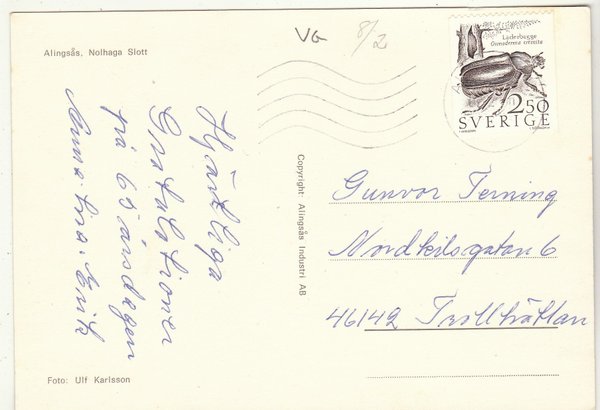 Alingsås, Nolhaga Slott
VG 8/2
Läderbagge
Osmoderma eremita
2.50
SVERIGE
Hjärtliga
Gratulationer
på 65 årsdagen
Anna-Lisa. Erik
Copyright Alingsås Industri AB
Gunvor Terning
Nordkilsgatan 6
46142 Trollhättan
Foto: Ulf Karlsson